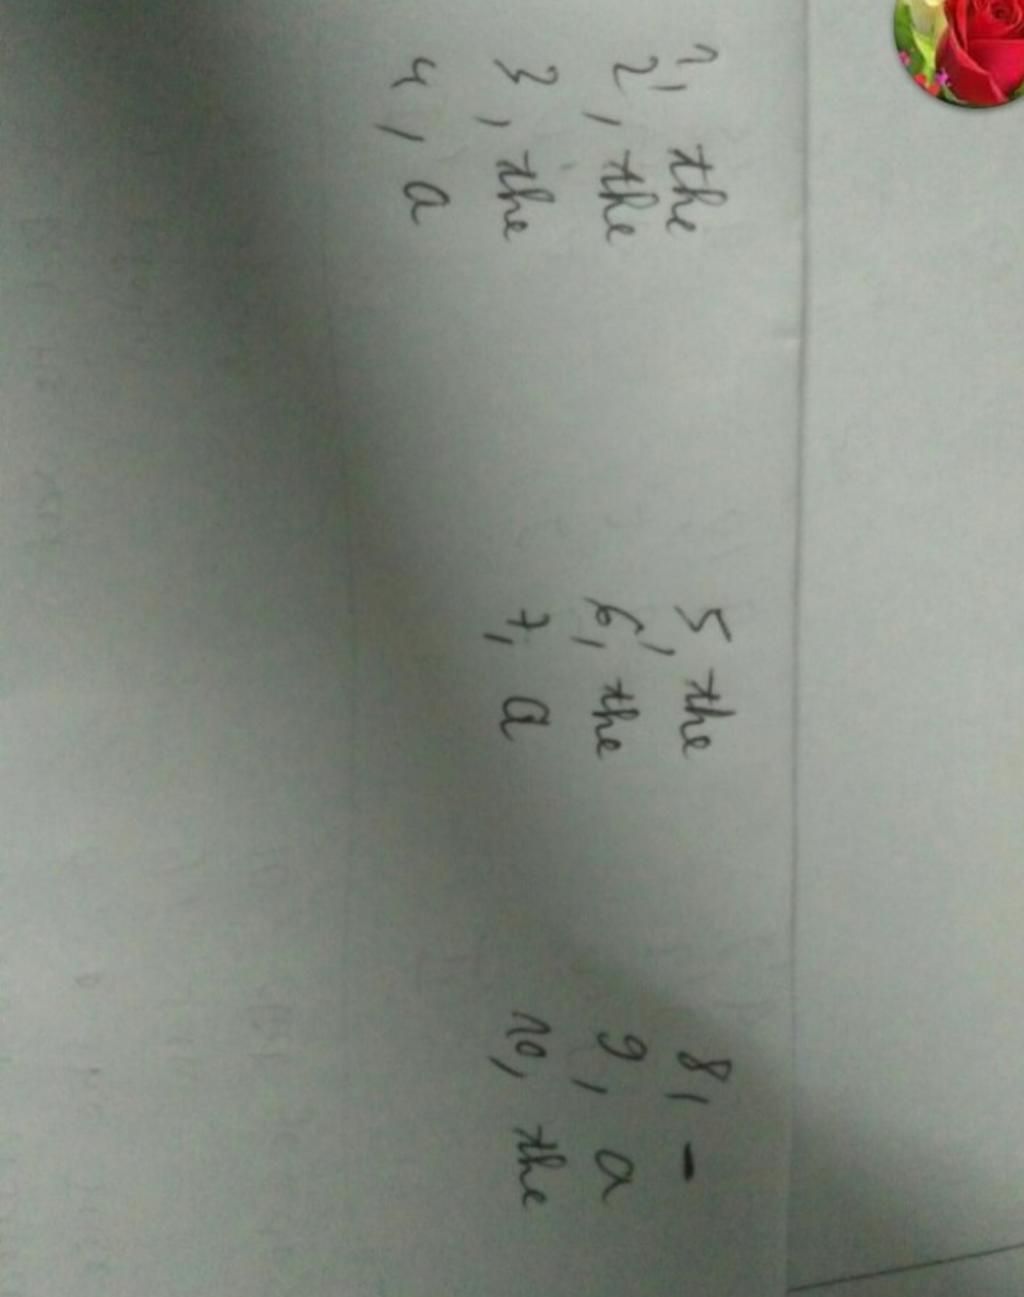 1, the
2, the
3, the
4, a
5, the
6, the
7, a
8, -
9, a
10, the